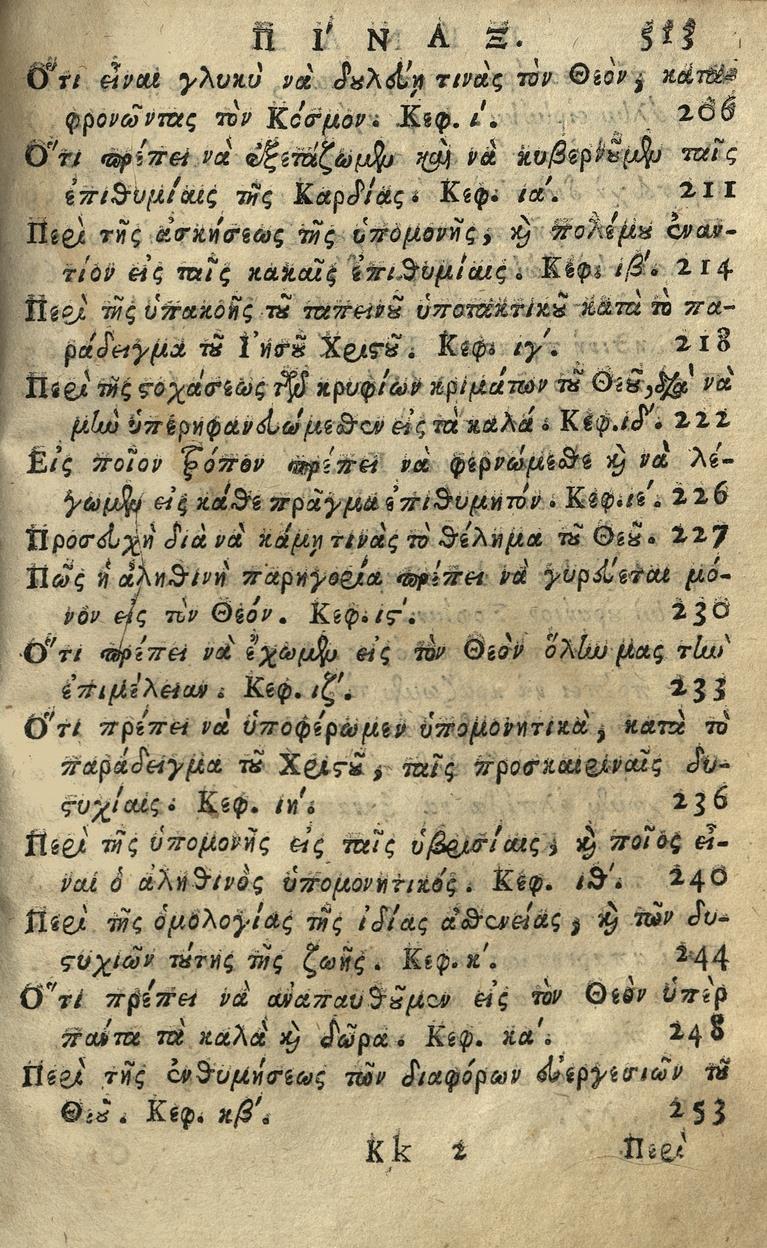 Π Ι΄ Ν Α Ξ. 513
Ὅτι εἶναι γλυκὺ νὰ δουλεύῃ τινὰς τὸν Θεὸν, κατα-
φρονῶντας τὸν Κόσμον. Κεφ. ί. 206
Ὅτι πρέπει νὰ ἐξετάζωμεν καὶ νὰ κυβερνοῦμεν ταῖς
ἐπιθυμίαις τῆς Καρδίας. Κεφ. ια΄. 211
Περὶ τῆς ἀσκήσεως τῆς ὑπομονῆς, καὶ πολέμου ἐναν-
τίον εἰς ταῖς κακαῖς ἐπιθυμίαις. Κεφ. ιβ΄. 214
Περὶ τῆς ὑπακοῆς τοῦ ταπεινοῦ ὑποτακτικοῦ κατὰ τὸ πα-
ράδειγμα τοῦ Ἰησοῦ Χριστοῦ. Κεφ. ιγ΄. 218
Περὶ τῆς στοχάσεως τῶν κρυφίων κριμάτων τοῦ Θεοῦ, διὰ νὰ
μὴν ὑπερηφανευώμεθεν εἰς τὰ καλά. Κεφ. ιδ΄. 222
Εἰς ποῖον τρόπον πρέπει νὰ φερνώμεθε καὶ νὰ λέ-
γωμεν εἰς κάθε πρᾶγμα ἐπιθυμητόν. Κεφ. ιε΄. 226
Προσευχὴ διὰ νὰ κάμῃ τινὰς τὸ θέλημα τοῦ Θεοῦ. 227
Πῶς ἡ ἀληθινὴ παρηγορία πρέπει νὰ γυρεύεται μό-
νον εἰς τὸν Θεόν. Κεφ. ις΄. 230
Ὅτι πρέπει νὰ ἔχωμεν εἰς τὸν Θεὸν ὅλην μας τὴν
ἐπιμέλειαν. Κεφ. ιζ΄. 233
Ὅτι πρέπει νὰ ὑποφέρωμεν ὑπομονητικὰ, κατὰ τὸ
παράδειγμα τοῦ Χριστοῦ, ταῖς προσκαιριναῖς δυ-
στυχίαις. Κεφ. ιη΄. 236
Περὶ τῆς ὑπομονῆς εἰς ταῖς ὑβρισίαις, καὶ ποῖος εἶ-
ναι ὁ ἀληθινὸς ὑπομονητικός. Κεφ. ιθ΄. 240
Περὶ τῆς ὁμολογίας τῆς ἰδίας ἀσθενείας, καὶ τῶν δυ-
στυχιῶν τούτης τῆς ζωῆς. Κεφ. κ΄. 244
Ὅτι πρέπει νὰ ἀναπαυθοῦμεν εἰς τὸν Θεὸν ὑπὲρ
πάντα τὰ καλὰ καὶ δῶρα. Κεφ. κα΄. 248
Περὶ τῆς ἐνθυμήσεως τῶν διαφόρων εὐεργεσιῶν τοῦ
Θεοῦ. Κεφ. κβ΄. 253
Kk 2 Περὶ